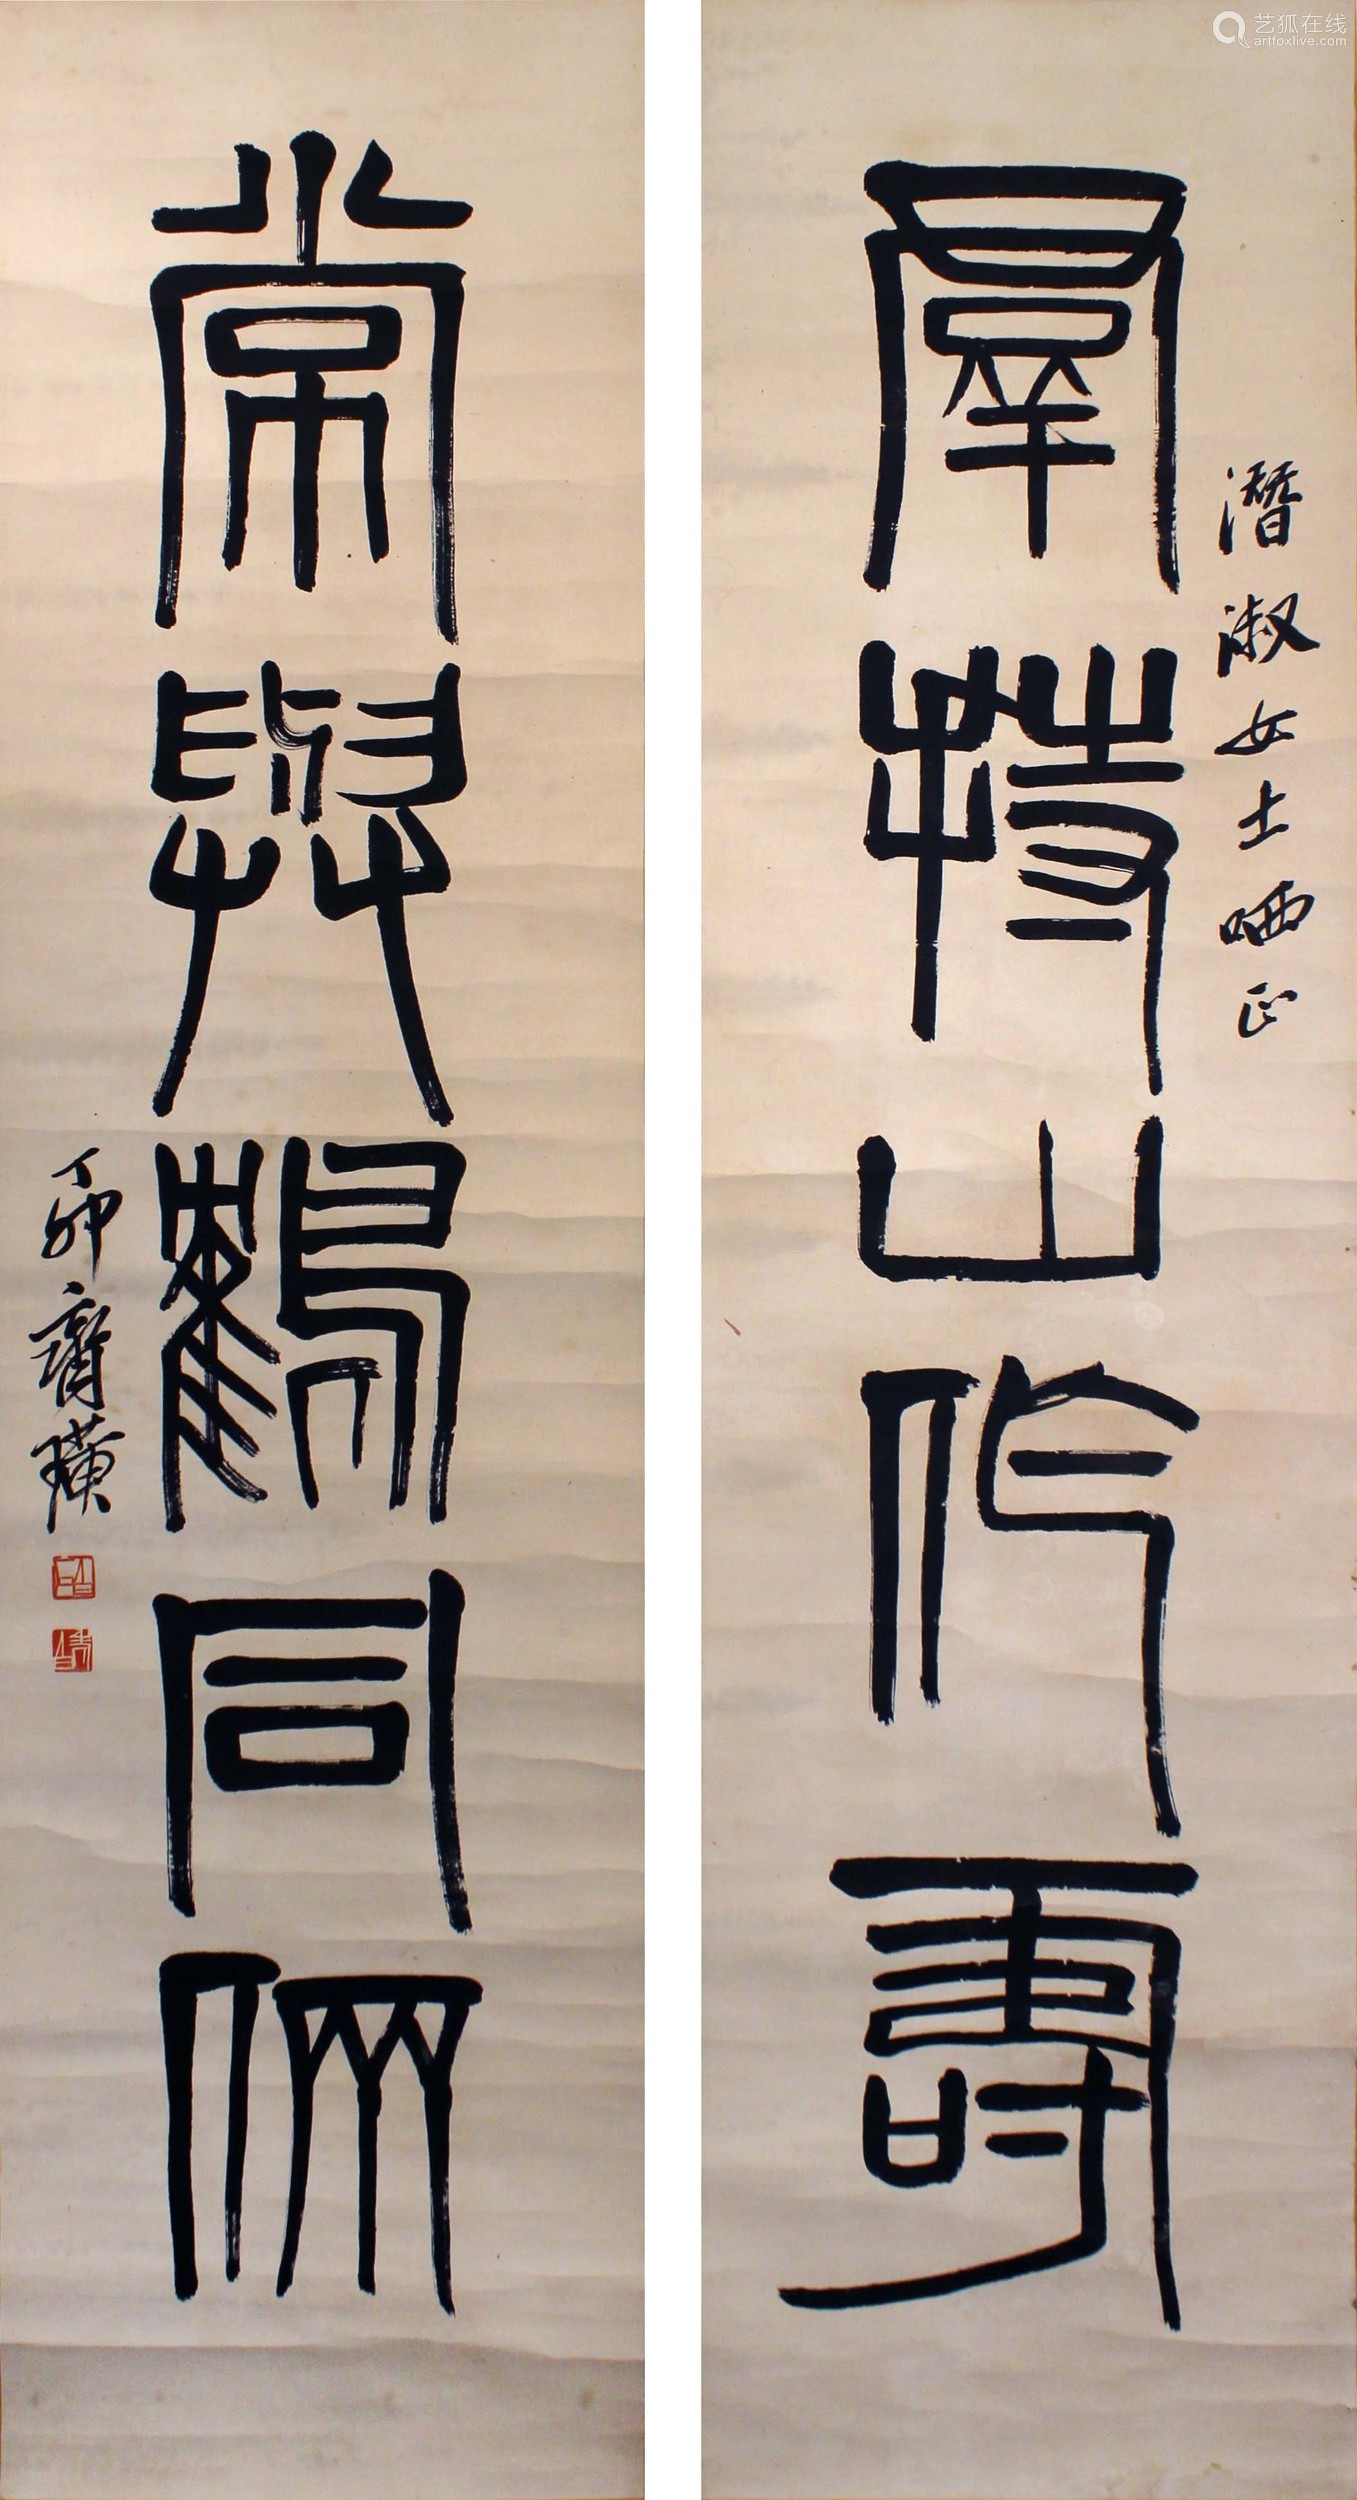 羣持山作壽
潛淑女士哂正
常與鶴同倆
丁卯齊璜
艺狐在线
artfoxlive.com